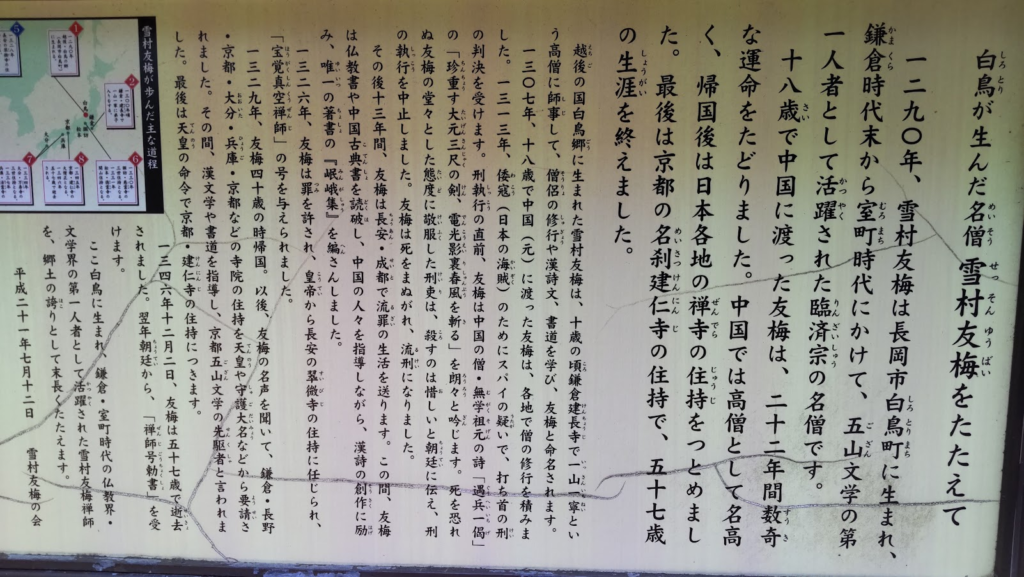 白鳥が生んだ名僧 雪村友梅をたたえて
一二九〇年、雪村友梅は長岡市白鳥町に生まれ、
鎌倉時代末から室町時代にかけて、五山文学の第
一人者として活躍された臨済宗の名僧です。
十八歳で中国に渡った友梅は、二十二年間数奇
な運命をたどりました。中国では高僧として名高
く、帰国後は日本各地の禅寺の住持をつとめまし
た。最後は京都の名刹建仁寺の住持で、五十七歳
の生涯を終えました。
越後の国白鳥郷に生まれた雪村友梅は、十歳の頃鎌倉建長寺で一山一寧とい
う高僧に師事して、僧侶の修行や漢詩文、書道を学び、友梅と命名されます。
一三〇七年、十八歳で中国（元）に渡った友梅は、各地で僧の修行を積みま
した。一三一三年、倭寇（日本の海賊）のためにスパイの疑いで、打ち首の刑
の判決を受けます。刑執行の直前、友梅は中国の僧・無学祖元の詩「遇兵一偈」
の「珍重す大元三尺の剣、電光影裏春風を斬る」を朗々と吟じます。死を恐れ
ぬ友梅の堂々とした態度に敬服した刑吏は、殺すのは惜しいと朝廷に伝え、刑
の執行を中止しました。友梅は死をまぬがれ、流刑になりました。
その後十三年間、友梅は長安・成都で流罪の生活を送ります。この間、友梅
は仏教書や中国古典書を読破し、中国の人々を指導しながら、漢詩の創作に励
み、唯一の著書の『岷峨集』を編さんしました。
一三二六年、友梅は罪を許され、皇帝から長安の翠微寺の住持に任じられ、
「宝覚真空禅師」の号を与えられました。
一三二九年、友梅四十歳の時帰国。以後、友梅の名声を聞いて、鎌倉・長野
・京都・大分・兵庫・京都などの寺院の住持を天皇や守護大名などから要請さ
れました。その間、漢文学や書道を指導し、京都五山文学の先駆者と言われま
した。最後は天皇の命令で京都・建仁寺の住持につきます。
一三四六年十二月二日、友梅は五十七歳で逝去
されました。翌年朝廷から、「禅師号勅書」を受
けます。
ここ白鳥に生まれ、鎌倉・室町時代の仏教界・
文学界の第一人者として活躍された雪村友梅禅師
を、郷土の誇りとして末長くたたえます。
平成二十一年七月十二日 雪村友梅の会
雪村友梅が歩んだ主な道程
1
2
5
6
8
7